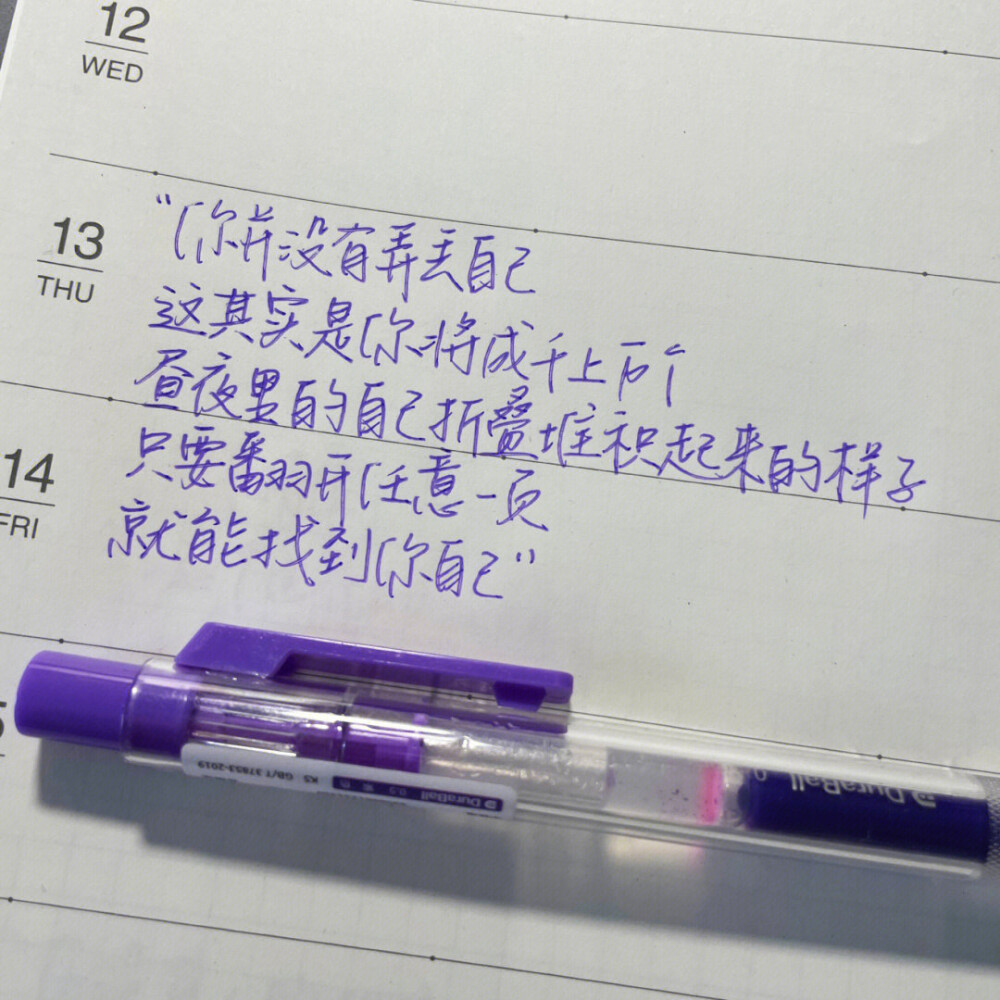 12
WED
13
THU
“你并没有弄丢自己
这其实是你将成千上万个
昼夜里的自己折叠堆积起来的样子
14
FRI
只要翻开任意一页
就能找到你自己”
5
DuraBall
0.5 紫色
K5 GB/T 37853-2019
DuraBall
0